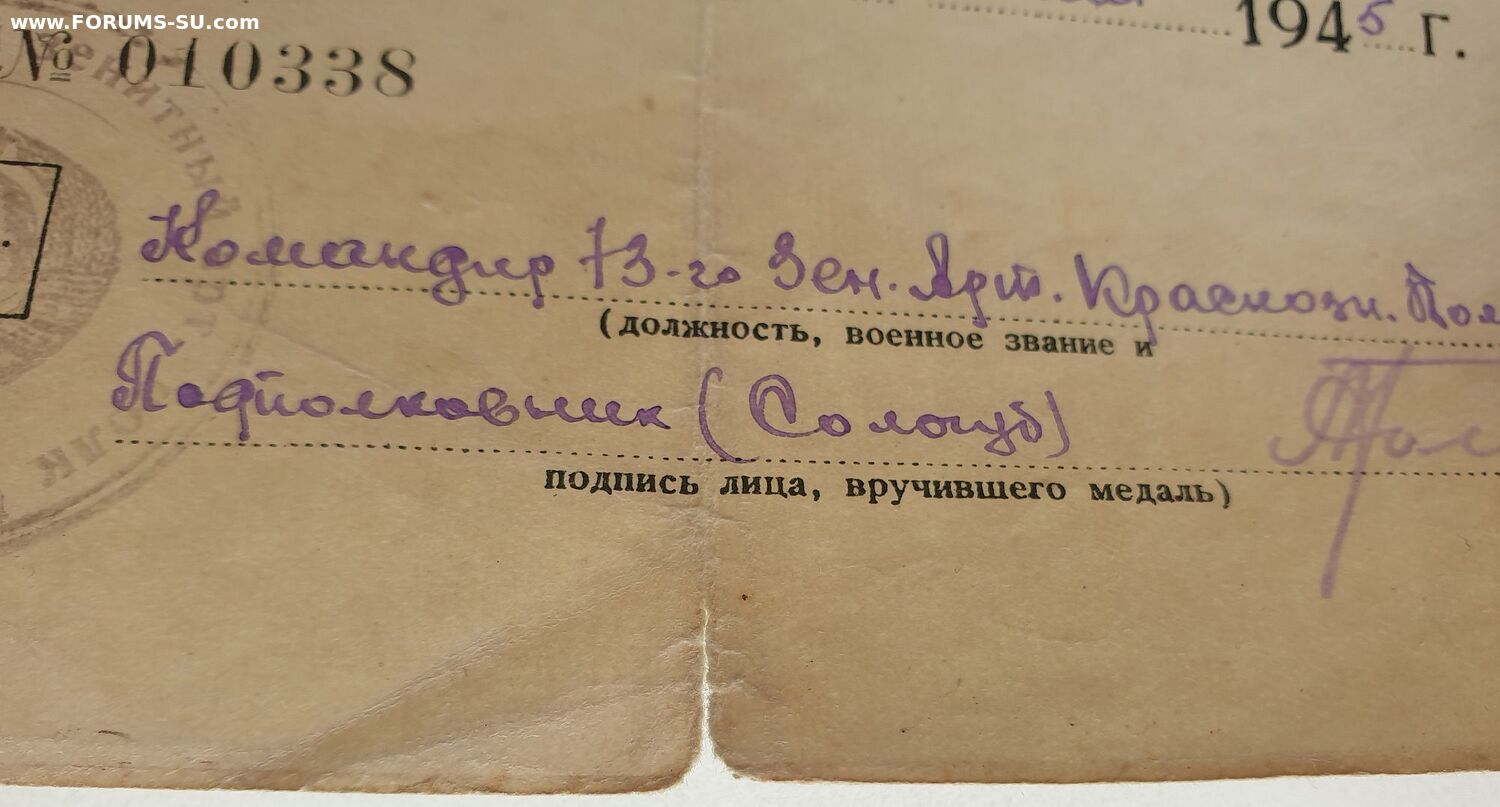 www.FORUMS-SU.com
1945 г.
№ 010338
ЗЕНИТНЫЙ
ПОЛК
Командир 73-го Зен. Арт. Краснозн. Пол
(должность, военное звание и
Подполковник (Сологуб)
подпись лица, вручившего медаль)